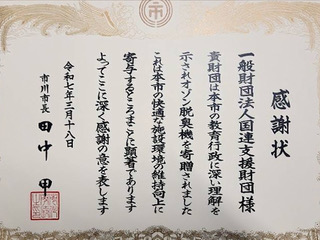 感謝状
一般財団法人国連支援財団様
貴財団は本市の教育行政に深い理解を
示されオゾン脱臭機を寄贈されました
これは本市の快適な施設環境の維持向上に
寄与するところまことに顕著であります
よってここに深く感謝の意を表します
令和七年三月十八日
市川市長 田中 甲